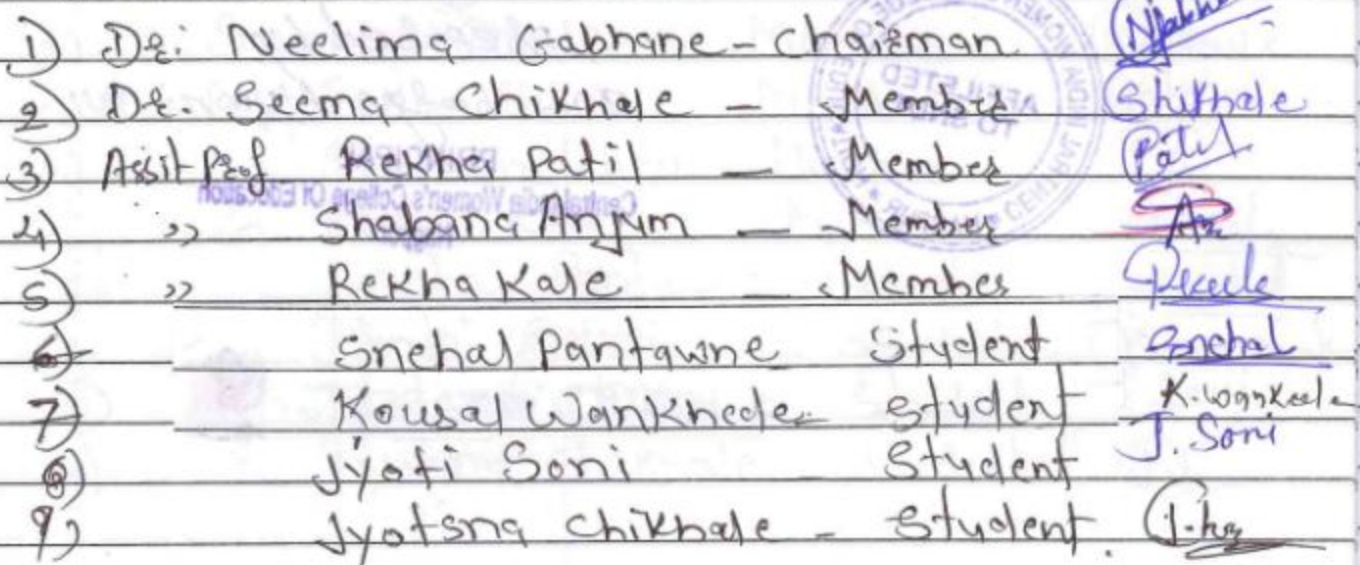 1) Dr. Neelima Gabhane - Chairman
2) Dr. Seema Chikhale - Member Shikhale
3) Assit Prof Rekha Patil - Member Patil
4) " Shabana Anjum - Member
5) " Rekha Kale - Member
6) Snehal Pantawne Student Snehal
7) Kousal Wankhede Student K. Wankhede
8) Jyoti Soni Student J. Soni
9) Jyotsna Chikhale - Student.